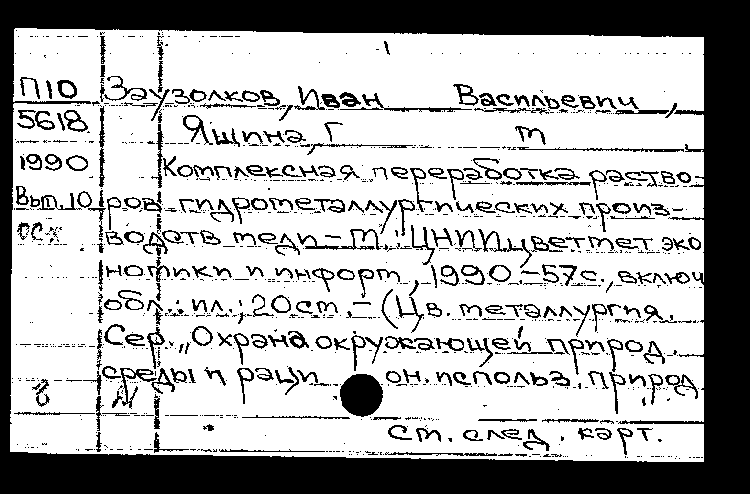 П10 Заузолков, Иван Васильевич,
5618 Яшина, Г М
1990 Комплексная переработка раство-
Вып. 10 ров гидрометаллургических произ-
водств меди - М.: ЦНИИцветмет эко
номики и информ, 1990.-57с., включ
обл.: ил.; 20см. - (Цв. металлургия.
Сер. „Охрана окружающей природ.
среды и раци он. использ. природ
ст. след. карт.